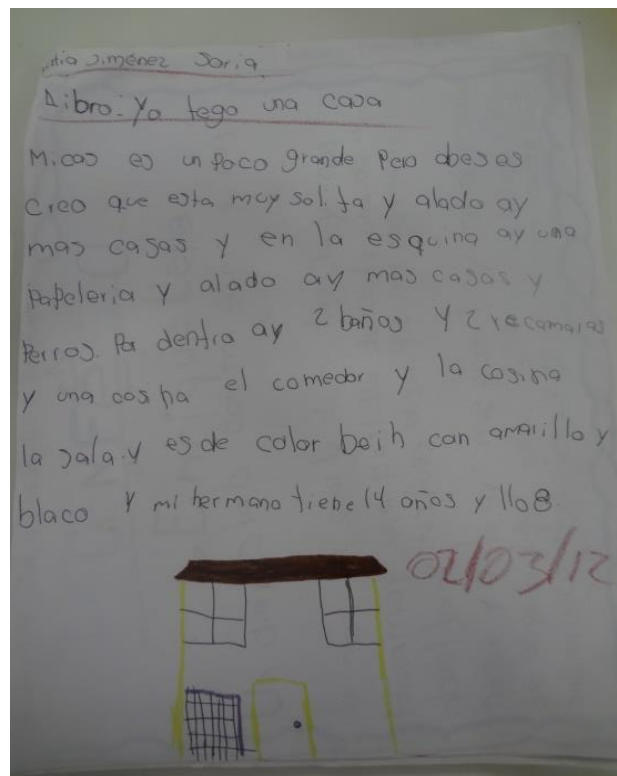 Jiménez Soria
Libro: Yo tego una casa
Micas es un poco grande Pero abeses
Creo que esta muy solita y alado ay
mas casas y en la esquina ay una
Papeleria y alado ay mas casas y
Perros. Por dentro ay 2 baños Y 2 recamaras
y una cosina el comedor y la cosina
la sala y es de color beih con amarillo y
blaco Y mi hermano tiene 14 años y llo 8.
02/03/12